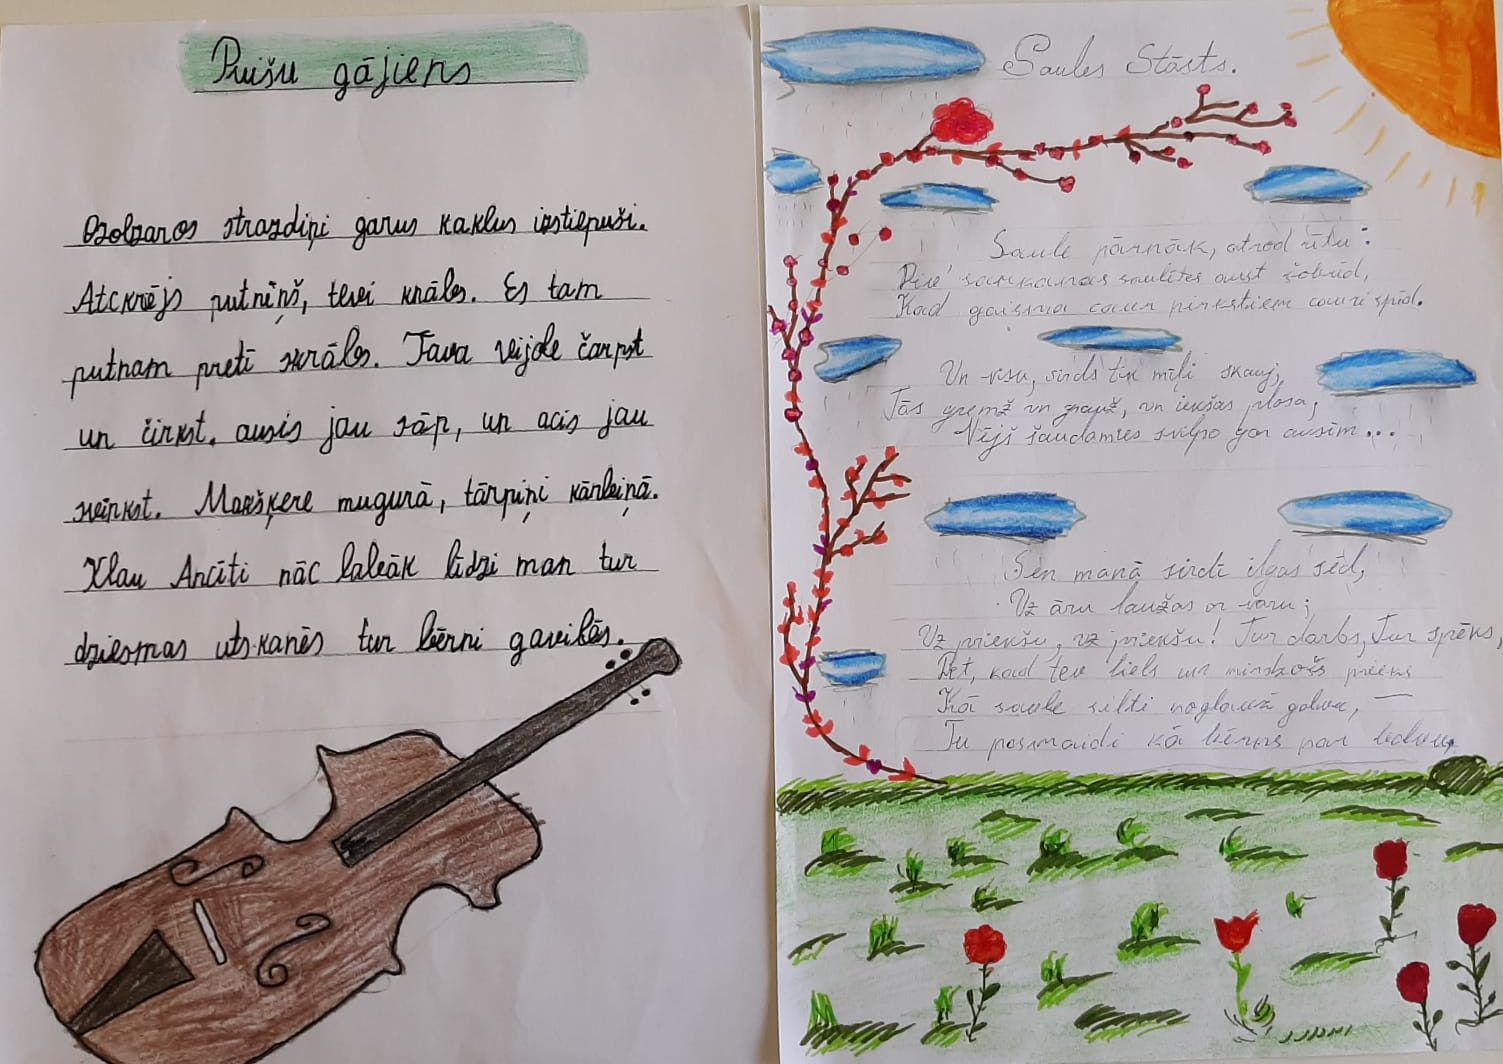 Puišu gājiens
Ozolzaros strazdiņi garus kaklus izstiepuši.
Atskrējs putniņš, tevi knābs. Es tam
putnam pretī skrābs. Tava vijole čarpst
un čirkst. ausis jau sāp, un acis jau
mirkst. Makšķere mugurā, tārpiņi kārbiņā.
Klau Ancīti nāc labāk līdzi man tur
dziesmas atskanēs tur bērni gavilēs.
Saules Stāsts.
Saule pārnāk, atrod rītu:
Divi sarkanas saulītes aust šobrīd,
Kad gaisma caur pirkstiem cauri spīd.
Un visu, sirds tik mīļi skauj,
Tās gremž un grauž, un iekšas plosa,
Vējš šaudamies svilpo gar ausīm...
Sen manā sirdī ilgas sēd,
Uz āru laužas ar varu;
Uz priekšu, uz priekšu! Tur darbs, Tur spēks,
Bet, kad tev liels un mirdzošs prieks
Kā saule silti noglauž galvu, —
Tu pasmaidi kā bērns par balvu.